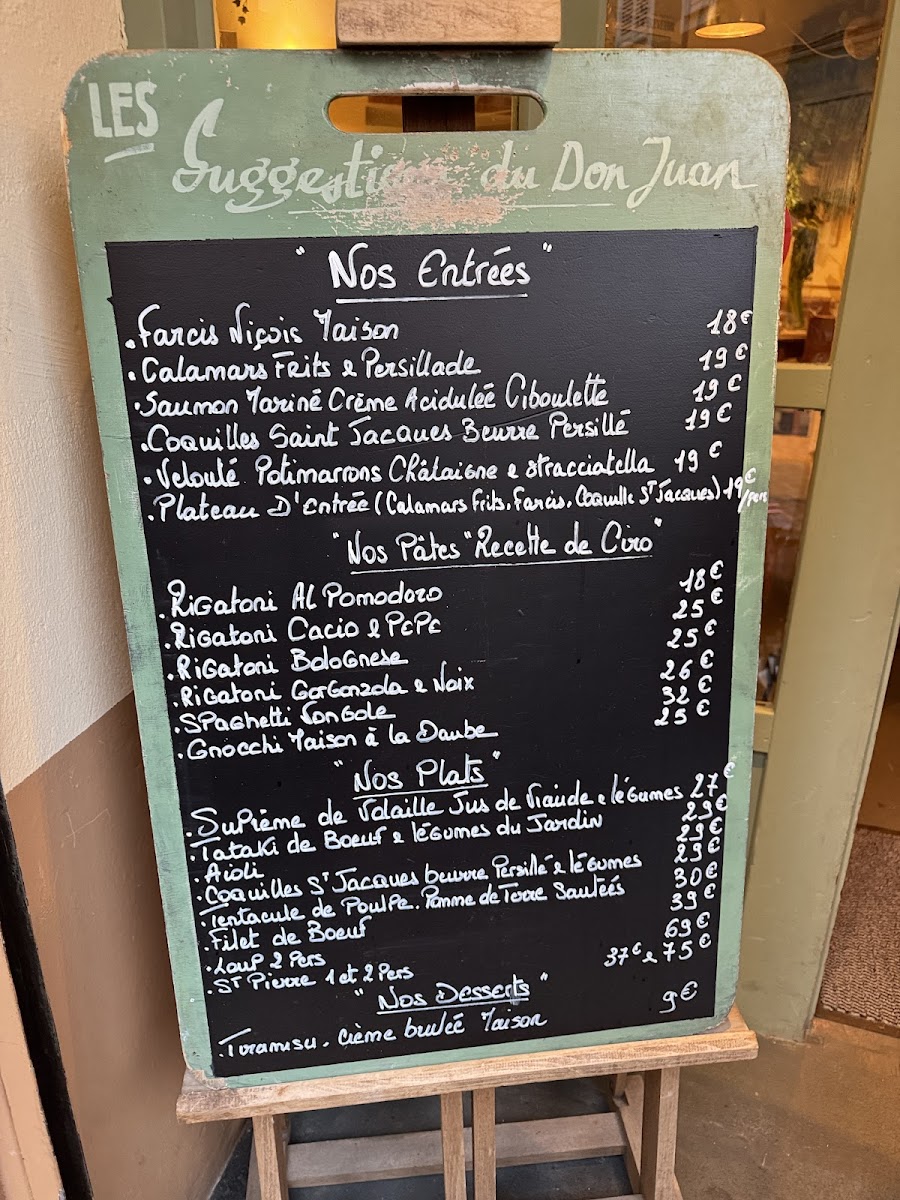 LES
Suggestions du Don Juan
" Nos Entrées "
. Farcis Niçois Maison 18€
. Calamars Frits & Persillade 19€
. Saumon Mariné Crème Acidulée Ciboulette 19€
. Coquilles Saint Jacques Beurre Persillé 19€
. Velouté Potimarrons Châtaigne & Stracciatella 19€
. Plateau D'Entrée (Calamars Frits, Farcis, Coquille St Jacques) 19€/pers
" Nos Pâtes "Recette de Ciro"
. Rigatoni Al Pomodoro 18€
. Rigatoni Cacio & Pepe 25€
. Rigatoni Bolognese 25€
. Rigatoni Gorgonzola & Noix 26€
. Spaghetti Vongole 32€
. Gnocchi Maison à la Daube 25€
" Nos Plats "
. Suprème de Volaille Jus de Viande & légumes 27€
. Tataki de Boeuf & légumes du Jardin 29€
. Aioli 29€
. Coquilles St Jacques beurre Persillé & légumes 29€
. Tentacule de Poulpe. Pomme de Terre Sautées 30€
. Filet de Boeuf 39€
. Loup 2 Pers 69€
. St Pierre 1 et 2 Pers 37€ & 75€
" Nos Desserts "
. Tiramisu. Crème brulée Maison 9€